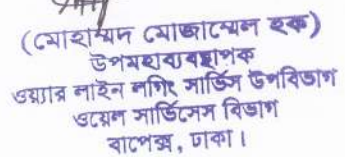 (মোহাম্মদ মোজাম্মেল হক)
উপমহাব্যবস্থাপক
ওয়্যার লাইন লগিং সার্ভিস উপবিভাগ
ওয়েল সার্ভিসেস বিভাগ
বাপেক্স, ঢাকা।